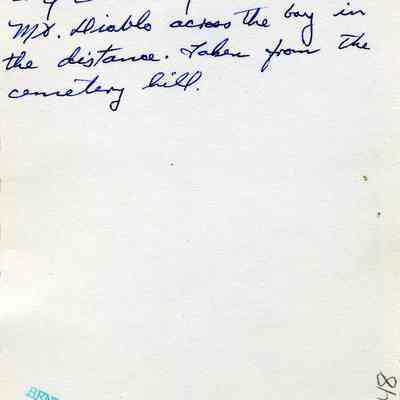 Mt. Diablo across the bay in
the distance. Taken from the
cemetery hill.